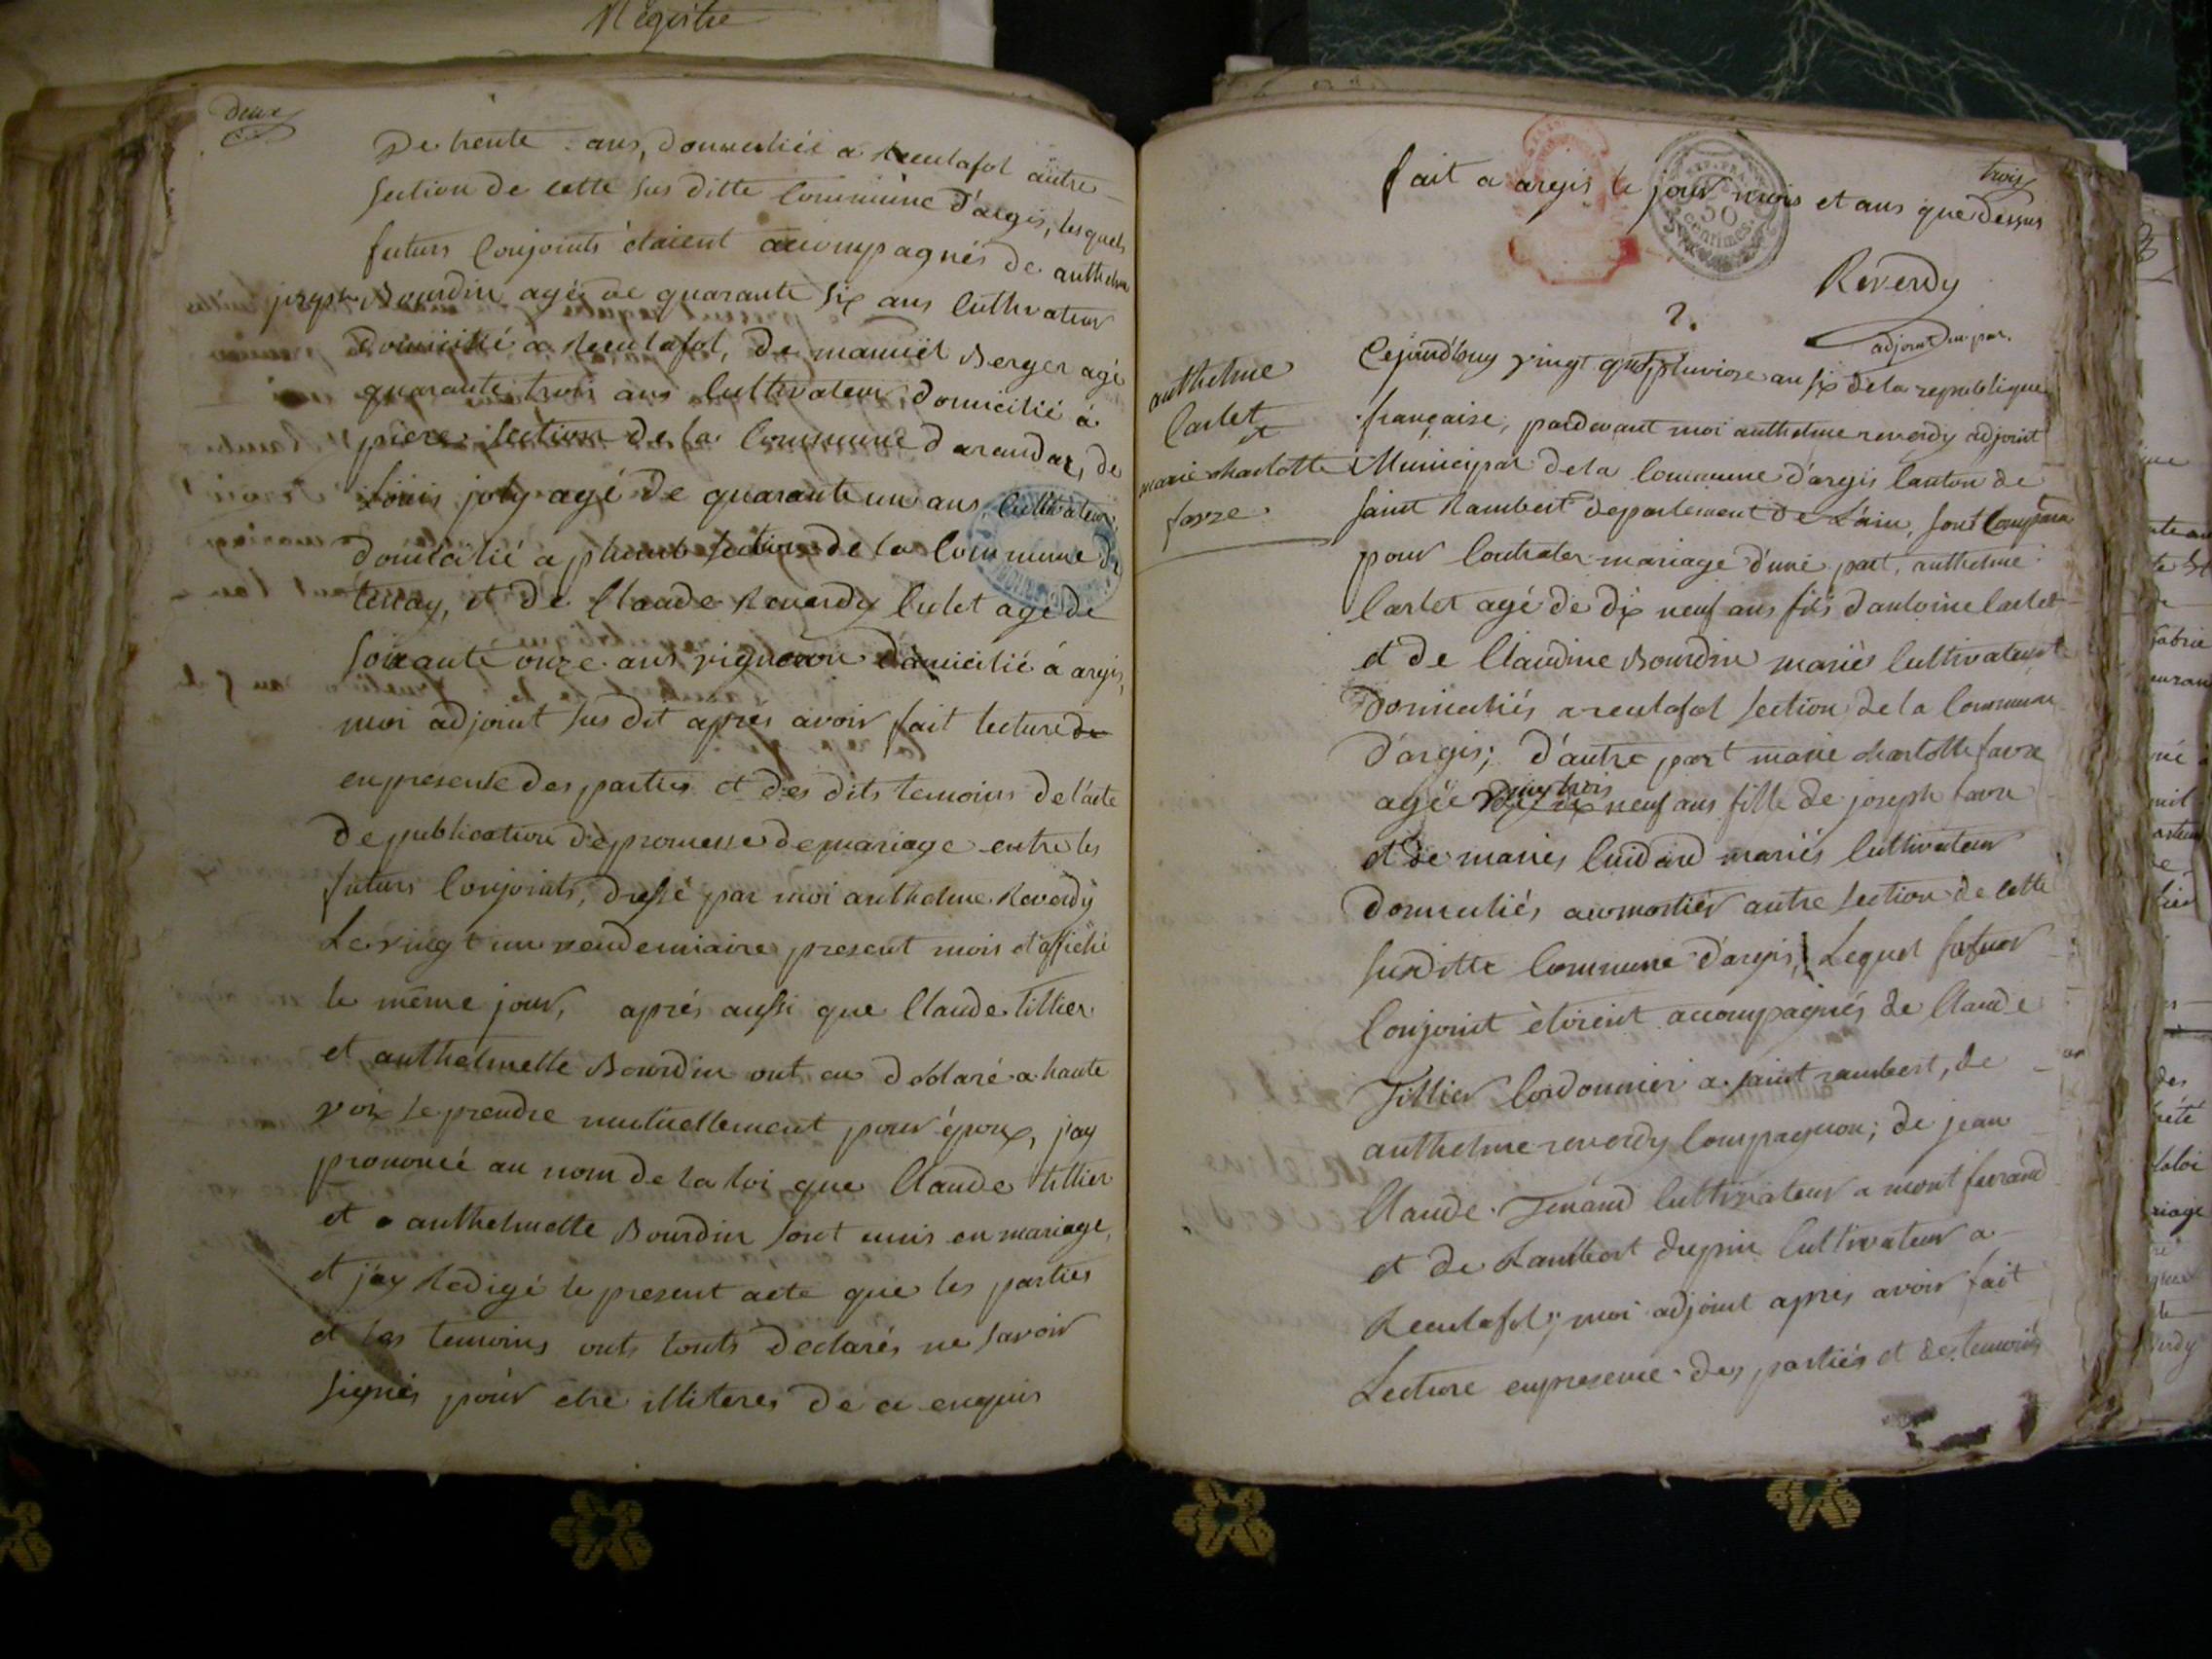 Registre
deux
De trente ans, domicilié a reculafol autre
section de cette sus ditte commune d'argis, les quels
futurs conjoints étaient accompagnés de anthelme
joseph Bourdin agé de quarante six ans cultivateur
domicilié a reculafol, de manuel Berger agé
quarante trois ans cultivateur domicilié à
section de la commune d'arandas, de
Louis joly agé de quarante un ans, cultivateur
domicilié a section de la commune de
tenay, et de Claude Reverdy agé de
soixante onze ans vigneron domicilié à argis,
moi adjoint sus dit apres avoir fait lecture de
en presence des parties et des dits temoins de l'acte
de publication de promesse de mariage entre les
futurs conjoints, dressé par moi anthelme Reverdy
Le vingt un vendemiaire present mois et affiché
le même jour, aprés aussi que Claude tillier
et anthelmette Bourdin ont eu déclaré a haute
voix se prendre mutuellement pour époux, j'ay
prononcé au nom de la loi que Claude tillier
et anthelmette Bourdin sont unis en mariage,
et j'ay Redigé le present acte que les parties
et les temoins onts touts declarés ne savoir
signés pour etre illiteres de ce enquis
trois
fait a argis le jour mois et ans que dessus
Reverdy
adjoint
2.
anthelme
Carlet
et
marie charlotte
favre
Cejourd'huy vingt pluviose an six de la republique
française, pardevant moi anthelme reverdy adjoint
Municipal de la commune d'argis canton de
saint Rambert departement de L'ain, sont comparu
pour contrater mariage d'une part, anthelme
Carlet agé de dix neuf ans fils d'antoine Carlet
et de Claudine Bourdin mariés cultivateurs
Domiciliés a reculafol section de la commune
d'argis; d'autre part marie charlotte favre
agée vingt trois neuf ans fille de joseph favre
et de maries Cuidard mariés cultivateur
domiciliés au mortier autre section de cette
susditte commune d'argis, Lequel futur
conjoint étoient accompagnés de Claude
Tillier cordonnier a saint rambert, de
anthelme reverdy compagnon; de jean
Claude Tenand cultivateur a mont ferrand
et de Rambert dupin cultivateur a
Reculafol; moi adjoint apres avoir fait
Lecture en presence des partiés et des temoins